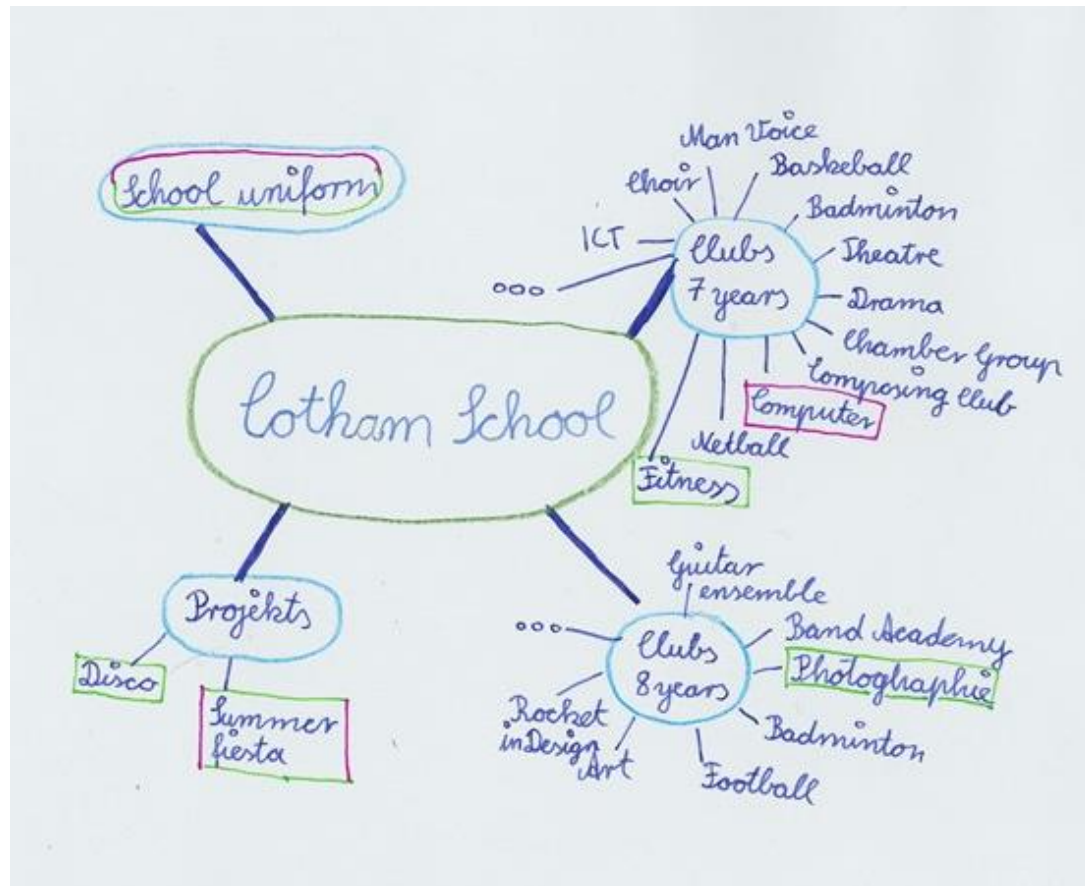 School uniform
Cotham School
Clubs
7 years
ooo
ICT
Choir
Man Voice
Baskeball
Badminton
Theatre
Drama
Chamber Group
Composing Club
Computer
Netball
Fitness
Projekts
Disco
Summer
fiesta
Clubs
8 years
ooo
Guitar
ensemble
Band Academy
Photographie
Badminton
Football
Art
Rocket
in Design